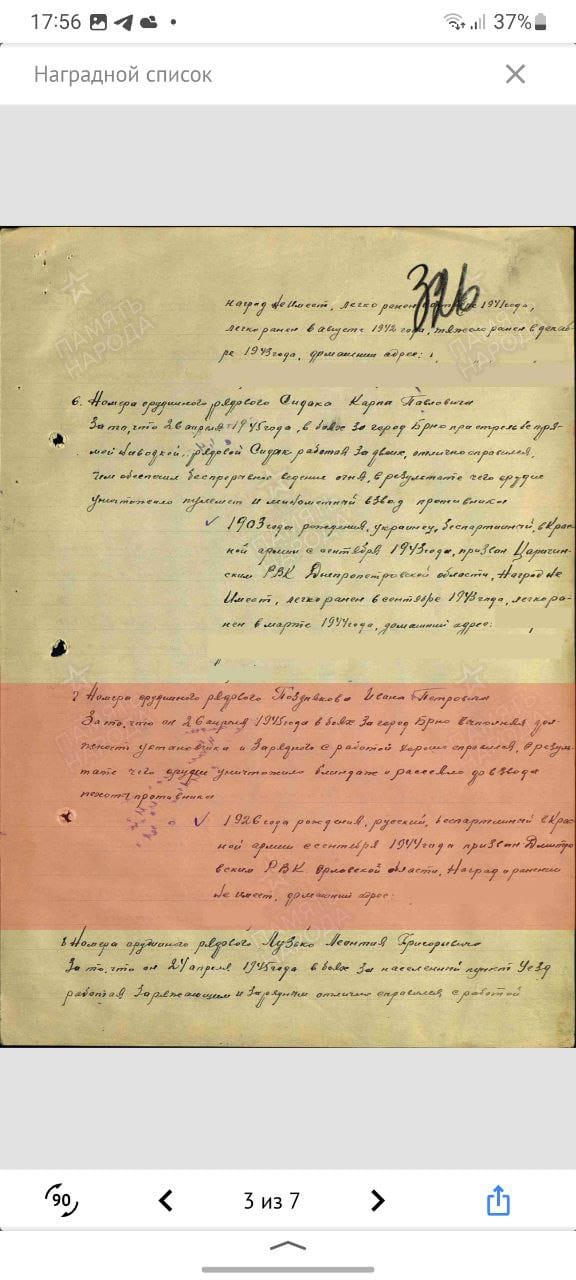 17:56
37%
Наградной список
326
наград не имеет, легко ранен 1941 года,
легко ранен в августе 1942 года, тяжело ранен в декаб-
ре 1943 года, домашний адрес:
6. Номера орудийного рядового Сидака Карпа Павловича
За то, что 26 апреля 1945 года, в боях за город Брно при стрельбе пря-
мой наводкой, рядовой Сидак работая за двоих, отлично справился,
чем обеспечил беспрерывное ведение огня, в результате чего орудие
уничтожило пулемет и минометный взвод противника
1903 года рождения, украинец, беспартийный, в Крас
ной армии с сентября 1943 года, призван Царичан-
ским РВК Днепропетровской области, Наград не
имеет, легко ранен в сентябре 1943 года, легко ра-
нен в марте 1944 года, домашний адрес:
7 Номера орудийного рядового Позднякова Ивана Петровича
За то, что он 26 апреля 1945 года в боях за город Брно выполняя дол-
жность установщика и зарядного с работой хорошо справился, в резуль-
тате чего орудие уничтожило блиндаж и рассеяло до взвода
пехоты противника
1926 года рождения, русский, беспартийный в Крас
ной армии с сентября 1944 года призван Дмитро
вским РВК Орловской области, Наград и ранений
не имеет, домашний адрес:
8 Номера орудийного рядового Музыко Григорьевича
За то, что он 24 апреля 1945 года в боях за населенный пункт Уезд
работая заряжающим и зарядным отлично справился с работой
ПАМЯТЬ НАРОДА
90
3 из 7